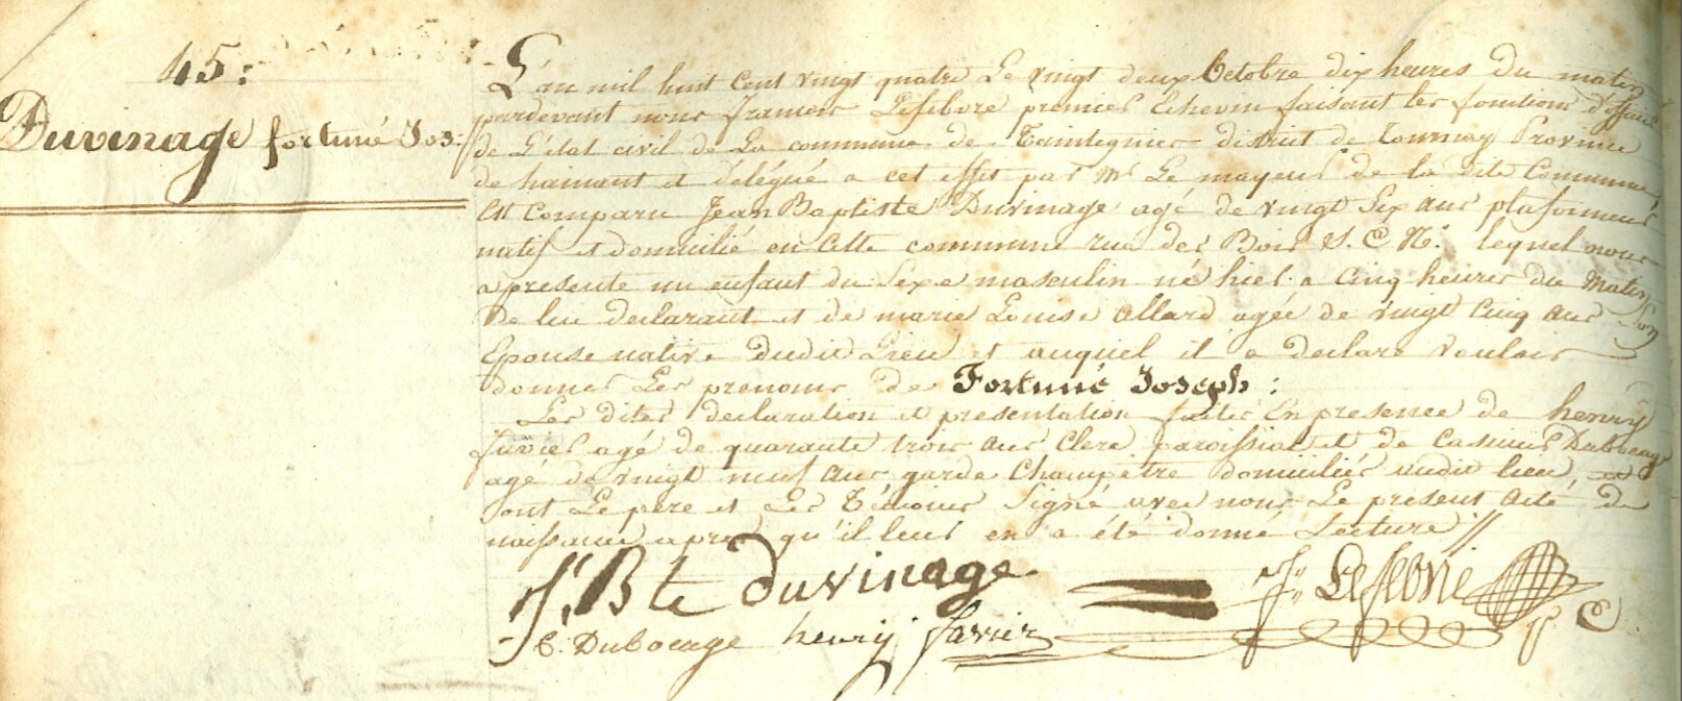 45:
Duvinage fortuné Jos:
L'an mil huit cent vingt quatre Le vingt deux Octobre dix heures du matin
pardevant nous francois Lefebvre premier Echevin faisant les fonctions d'officier
de L'état civil de La commune de Taintegnies district de Tournay Province
de hainaut et délégué a cet effet par Mr Le mayeur de la dite Commune
Est Comparu Jean Baptiste Duvinage agé de vingt Six ans plafonneur
natif et domicilié en Cette commune rue des Bois S. C. N°. lequel nous
a presenté un enfant du Sexe masculin né hier a Cinq heures du Matin
De lui declarant et de marie Louise Allard agée de vingt Cinq ans Son
Epouse native dudit Lieu et auquel il a declaré vouloir
donner Les prenoms de Fortuné Joseph:
Les dites declaration et presentation faites En presence de henry
agé de quarante trois ans Clerc paroissial et de Casimir Dubocage
agé de vingt neuf ans garde Champêtre domiciliés audit lieu
ont Le pere et Les Témoins Signé avec nous Le present acte de
naissance apres qu'il leur en a été donné Lecture //
J. Bte Duvinage F. Lefebvre
C. Dubocage henry favier